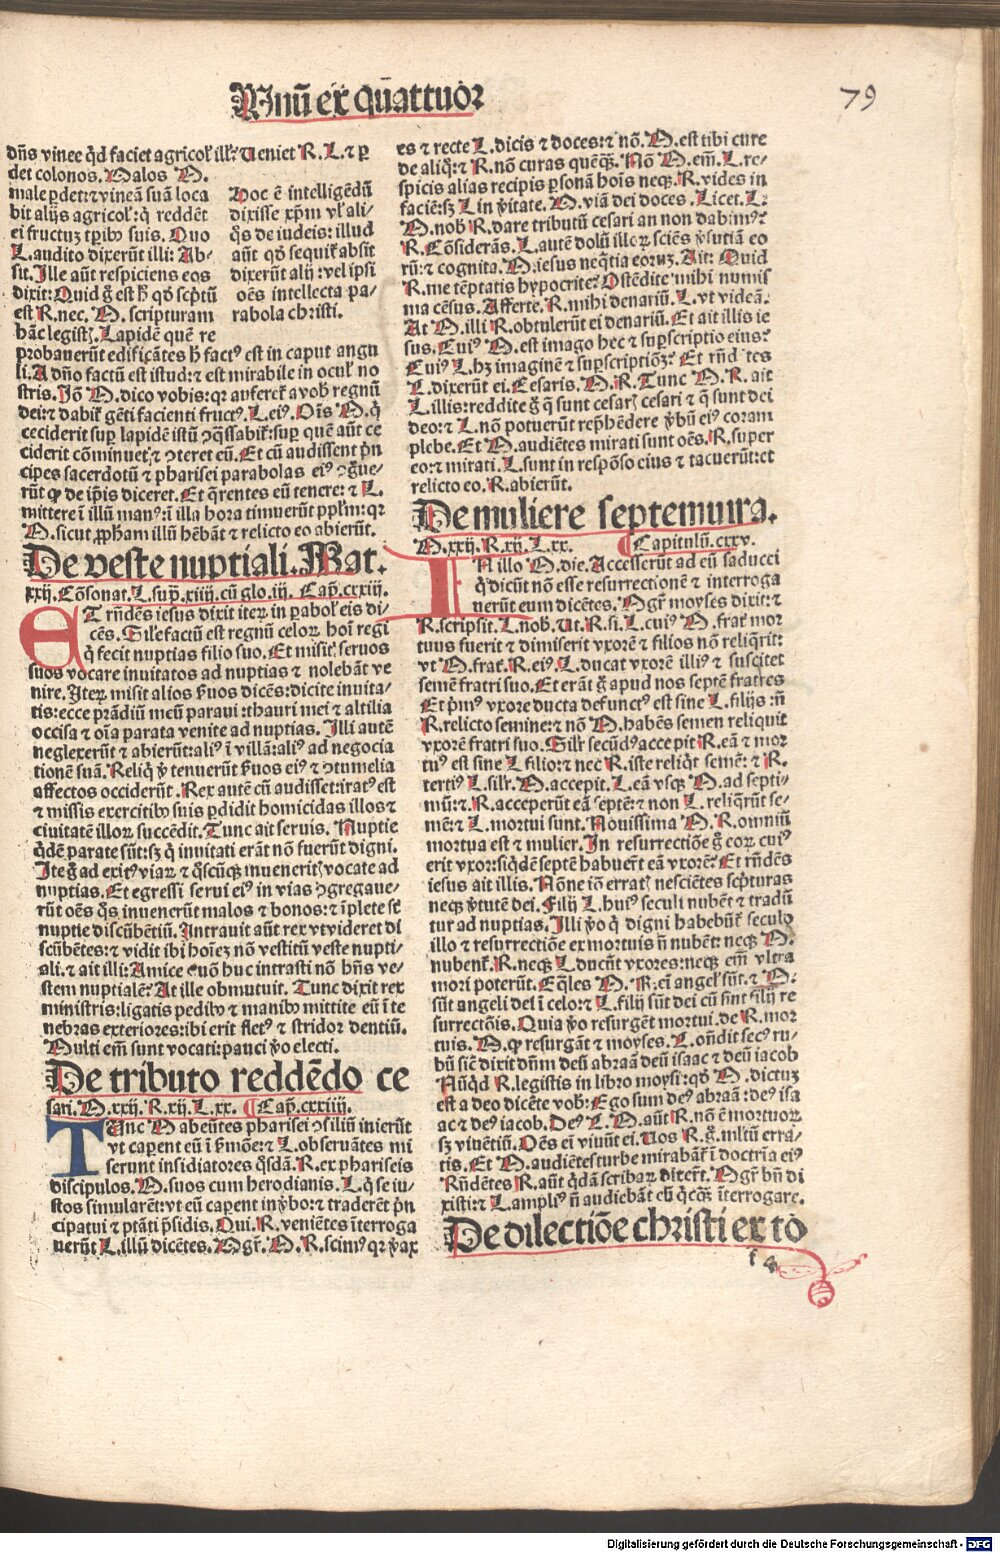 Unū ex quattuor
79
dn̄s vinee qd̓ faciet agricol̓ ill̓? Ueniet R. L. ⁊ ꝑ
det colonos. Malos M.
male ꝑdet: ⁊ vineā suā loca
bit alijs agricol̓: q̓ reddēt
ei fructuꝫ tꝑibꝰ suis. Quo
L. audito dixerūt illi: Ab-
sit. Ille aūt respiciens eos
dixit: Quid g̊ est h̓ qd̓ scp̄tū
est R. nec. M. scripturam
hāc legistꝭ. Lapidē quē re
Hoc ē intelligēdū
dixisse xp̄m vl̓ ali-
q̊s de iudeis: illud
aūt qd̓ sequit̓ absit
dixerūt alij: vel ipsi
oēs intellecta pa-
rabola christi.
probauerūt edificātes h̓ factꝰ est in caput angu
li. A dn̄o factū est istud: ⁊ est mirabile in ocul̓ no
stris. Iō M. dico vobis: qꝛ auferet̓ a vob̓ regnū
dei: ⁊ dabit̓ gēti facienti fructꝰ. L. eiꝰ. Oīs M. q̓
ceciderit suꝑ lapidē istū ꝯq̄ssabit̓: suꝑ quē aūt ce
ciderit cōminuet̓: ⁊ ꝯteret eū. Et cū audissent p̓n
cipes sacerdotū ⁊ pharisei parabolas eiꝰ ꝯg̊ue-
rūt ꝙ de ip̄is diceret. Et q̄rentes eū tenere: ⁊ L.
mittere ī illū manꝰ: ī illa hora timuerūt ppl̓m: qꝛ
M. sicut ꝓpham illū hēbāt ⁊ relicto eo abierūt.
De veste nuptiali. Mat.
xxij. Cōsonat. L. sup̄. xiiij. cū glo. iij. Cap̄. cxxiij.
ET rn̄dēs iesus dixit iteꝝ in ꝑabol̓ eis di-
cēs. Sil̓e factū est regnū celoꝝ hoī regi
q̓ fecit nuptias filio suo. Et misit seruos
suos vocare inuitatos ad nuptias ⁊ nolebāt ve
nire. Iteꝝ misit alios ẜuos dicēs: dicite inuita-
tis: ecce prādiū meū paraui: thauri mei ⁊ altilia
occisa ⁊ oīa parata venite ad nuptias. Illi autē
neglexerūt ⁊ abierūt: aliꝰ ī villā: aliꝰ ad negocia
tionē suā. Reliq̓ v̓o tenuerūt ẜuos eiꝰ ⁊ ꝯtumelia
affectos occiderūt. Rex autē cū audisset: iratꝰ est
⁊ missis exercitibꝰ suis ꝑdidit homicidas illos ⁊
ciuitatē illoꝝ succēdit. Tunc ait seruis. Nuptie
q̓dē parate sūt: sꝫ q̓ inuitati erāt nō fuerūt digni.
Ite g̊ ad exitꝰ viaꝝ ⁊ q̊scūqꝫ inueneritꝭ vocate ad
nuptias. Et egressi serui eiꝰ in vias ꝯgregaue-
rūt oēs q̊s inuenerūt malos ⁊ bonos: ⁊ īplete st̄
nuptie discūbētiū. Intrauit aūt rex vt videret di
scūbētes: ⁊ vidit ibi hoīeꝫ nō vestitū veste nupti-
ali. ⁊ ait illi: Amice quō huc intrasti nō hn̄s ve-
stem nuptialē? At ille obmutuit. Tunc dixit rex
ministris: ligatis pedibꝰ ⁊ manibꝰ mittite eū ī te
nebras exteriores: ibi erit fletꝰ ⁊ stridor dentiū.
Multi em̄ sunt vocati: pauci v̓o electi.
De tributo reddēdo ce
sari. M. xxij. R. xij. L. xx. ¶ Cap̄. cxxiiij.
TUnc M abeūtes pharisei ꝯsiliū inierūt
vt caꝑent eū ī ẜmōe: ⁊ L. obseruātes mi
serunt insidiatores q̊sdā. R. ex phariseis
discipulos. M. suos cum herodianis. L. q̓ se iu-
stos simularēt: vt eū caꝑent in v̓bo: ⁊ traderēt p̓n
cipatui ⁊ ptāti p̓sidis. Qui. R. veniētes īterroga
uerūt L. illū dicētes. Mgr̄. M. R. scimꝰ qꝛ v̓ax
es ⁊ recte L. dicis ⁊ doces: ⁊ nō. M. est tibi cure
de aliq̊: ⁊ R. nō curas quēqꝫ. Nō M. em̄. L. re-
spicis alias recipis ꝑsonā hoīs neqꝫ. R. vides in
faciē: sꝫ L in v̓itate. M. viā dei doces. Licet. L.
M. nob̓ R. dare tributū cesari an non dabimꝰ?
R. Cōsiderās. L. autē dolū illoꝝ sciēs v̓sutiā eo
rū: ⁊ cognita. M. iesus neq̓tia eoruꝫ. Ait: Quid
R. me tēptatis hypocrite? Ostēdite mihi numis
ma cēsus. Afferte. R. mihi denariū. L. vt videā.
At M. illi R. obtulerūt ei denariū. Et ait illis ie
sus. Cuiꝰ M. est imago hec ⁊ suꝑscriptio eius?
Cuiꝰ L. hꝫ imaginē ⁊ suꝑscriptiōꝫ? Et rn̄dētes
L. dixerūt ei. Cesaris. M. R. Tunc M. R. ait
L. illis: reddite g̊ q̄ sunt cesarꝭ cesari ⁊ q̄ sunt dei
deo: ⁊ L. nō potuerūt rep̄hēdere v̓bū eiꝰ coram
plebe. Et M. audiētes mirati sunt oēs. R. super
eo: ⁊ mirati. L. sunt in respōso eius ⁊ tacuerūt: et
relicto eo. R. abierūt.
De muliere septemuira.
M. xxij. R. xij. L. xx. ¶ Capitulū. cxxv.
IN illo M. die. Accesserūt ad eū saducei
q̓ dicūt nō esse resurrectionē ⁊ interroga
uerūt eum dicētes. Mgr̄ moyses dixit: ⁊
R. scripsit. L. nob̓. Ut. R. si. L. cuiꝰ M. frat̓ mor
tuus fuerit ⁊ dimiserit vxorē ⁊ filios nō reliq̓rit:
vt M. frat̓. R. eiꝰ. L. ducat vxorē illiꝰ ⁊ suscitet
semē fratri suo. Et erāt g̊ apud nos septē fratres
Et p̓mꝰ vxore ducta defunctꝰ est sine L. filijs: ⁊
R. relicto semine: ⁊ nō M. habēs semen reliquit
vxorē fratri suo. Sil̓r secūdꝰ accepit R. eā ⁊ mor
tuꝰ est sine L filio: ⁊ nec R. iste reliq̓t semē: ⁊ R.
tertiꝰ L. sil̓r. M. accepit. L. eā vsqꝫ M. ad septi-
mū: ⁊. R. acceperūt eā septē: ⁊ non L. reliq̓rūt se-
mē: ⁊ L. mortui sunt. Nouissima M. R. omniū
mortua est ⁊ mulier. In resurrectiōe g̊ eoꝝ cuiꝰ
erit vxor: siq̓dē septē habuer̄t eā vxorē? Et rn̄dēs
iesus ait illis. Nōne iō erratꝭ nesciētes scp̄turas
neqꝫ v̓tutē dei. Filij L. huiꝰ seculi nubēt ⁊ tradū
tur ad nuptias. Illi v̓o q̓ digni habebūt̓ seculo
illo ⁊ resurrectiōe ex mortuis n̄ nubēt: neqꝫ M.
nubent̓. R. neqꝫ L ducūt vxores: neqꝫ em̄ vltra
mori poterūt. Eq̄les M. R. em̄ angel̓ sūt. ⁊ M.
sūt angeli dei ī celo: ⁊ L. filij sūt dei cū sint filij re
surrectōis. Quia v̓o resurgēt mortui. de R. mor
tuis. M. ꝙ resurgāt ⁊ moyses. L. on̄dit secꝰ ru-
bū sic̄ dixit dn̄m deū abraā deū isaac ⁊ deū iacob
Nūq̓d R. legistis in libro moysi: qd̓ M. dictuꝫ
est a deo dicēte vob̓: Ego sum deꝰ abraā: deꝰ isa
ac ⁊ deꝰ iacob. Deꝰ L. M. aūt R. nō ē mortuoꝝ
sꝫ viuētiū. Oēs em̄ viuūt ei. Uos R. g̊. ml̓tū erra-
tis. Et M. audiētes turbe mirabāt̓ ī doctria eiꝰ
Rn̄dētes R. aūt q̓dā scribaꝝ dixer̄t. Mgr̄ bn̄ di
xisti: ⁊ L. ampliꝰ n̄ audebāt eū q̓cq̄ꝫ īterrogare.
De dilectiōe christi ex to
f 4
Digitalisierung gefördert durch die Deutsche Forschungsgemeinschaft - DFG